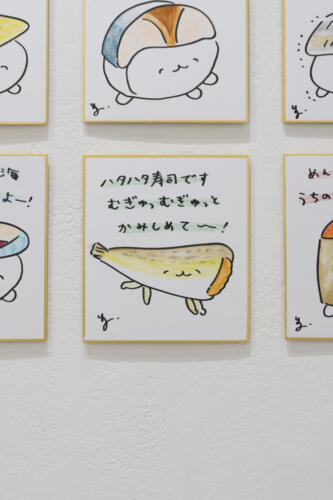 海
よー!
ハタハタ寿司です
むぎゅっむぎゅっと
かみしめて〜!
めん
うちの